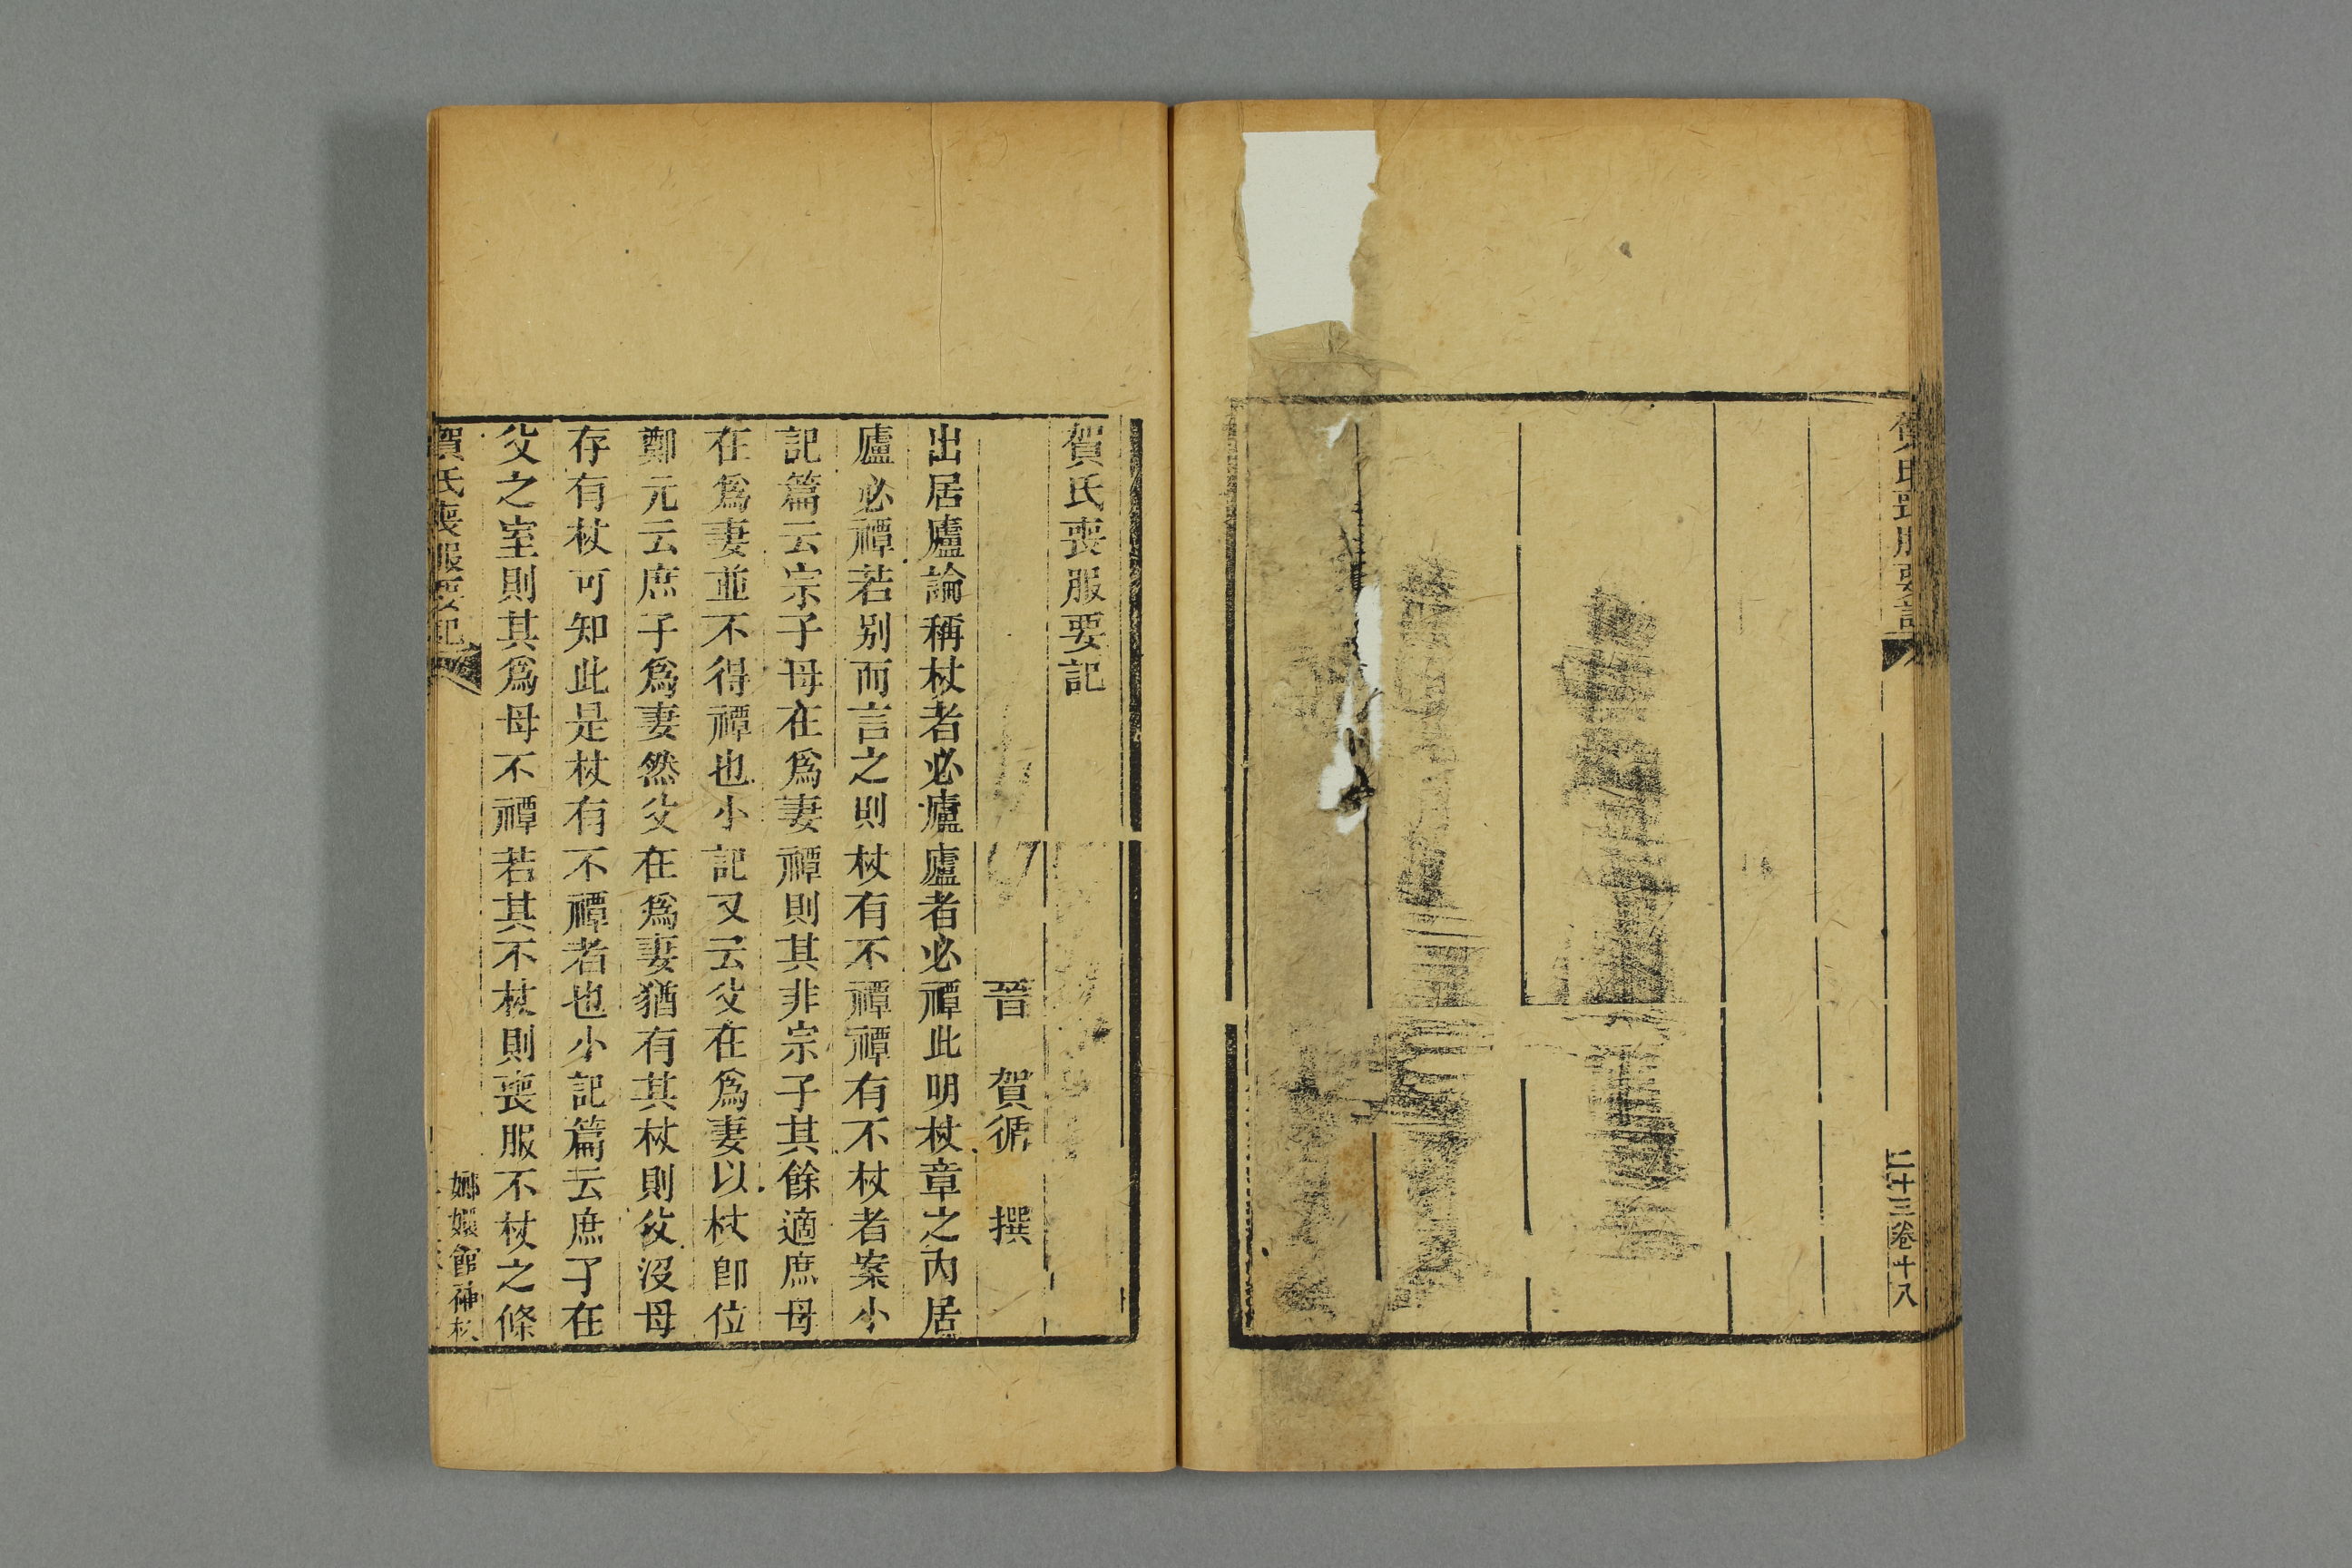 氏喪服要記
二十三卷十八
賀氏喪服要記
晉 賀循 撰
出居廬論稱杖者必廬廬者必禫此明杖章之內居
廬必禫若别而言之則杖有不禫禫有不杖者案小
記篇云宗子母在爲妻禫則其非宗子其餘適庶母
在爲妻並不得禫也小記又云父在爲妻以杖卽位
鄭元云庶子爲妻然父在爲妻猶有其杖則父沒母
存有杖可知此是杖有不禫者也小記篇云庶子在
父之室則其爲母不禫若其不杖則喪服不杖之條
賀氏喪服要記
嫏嬛館補校